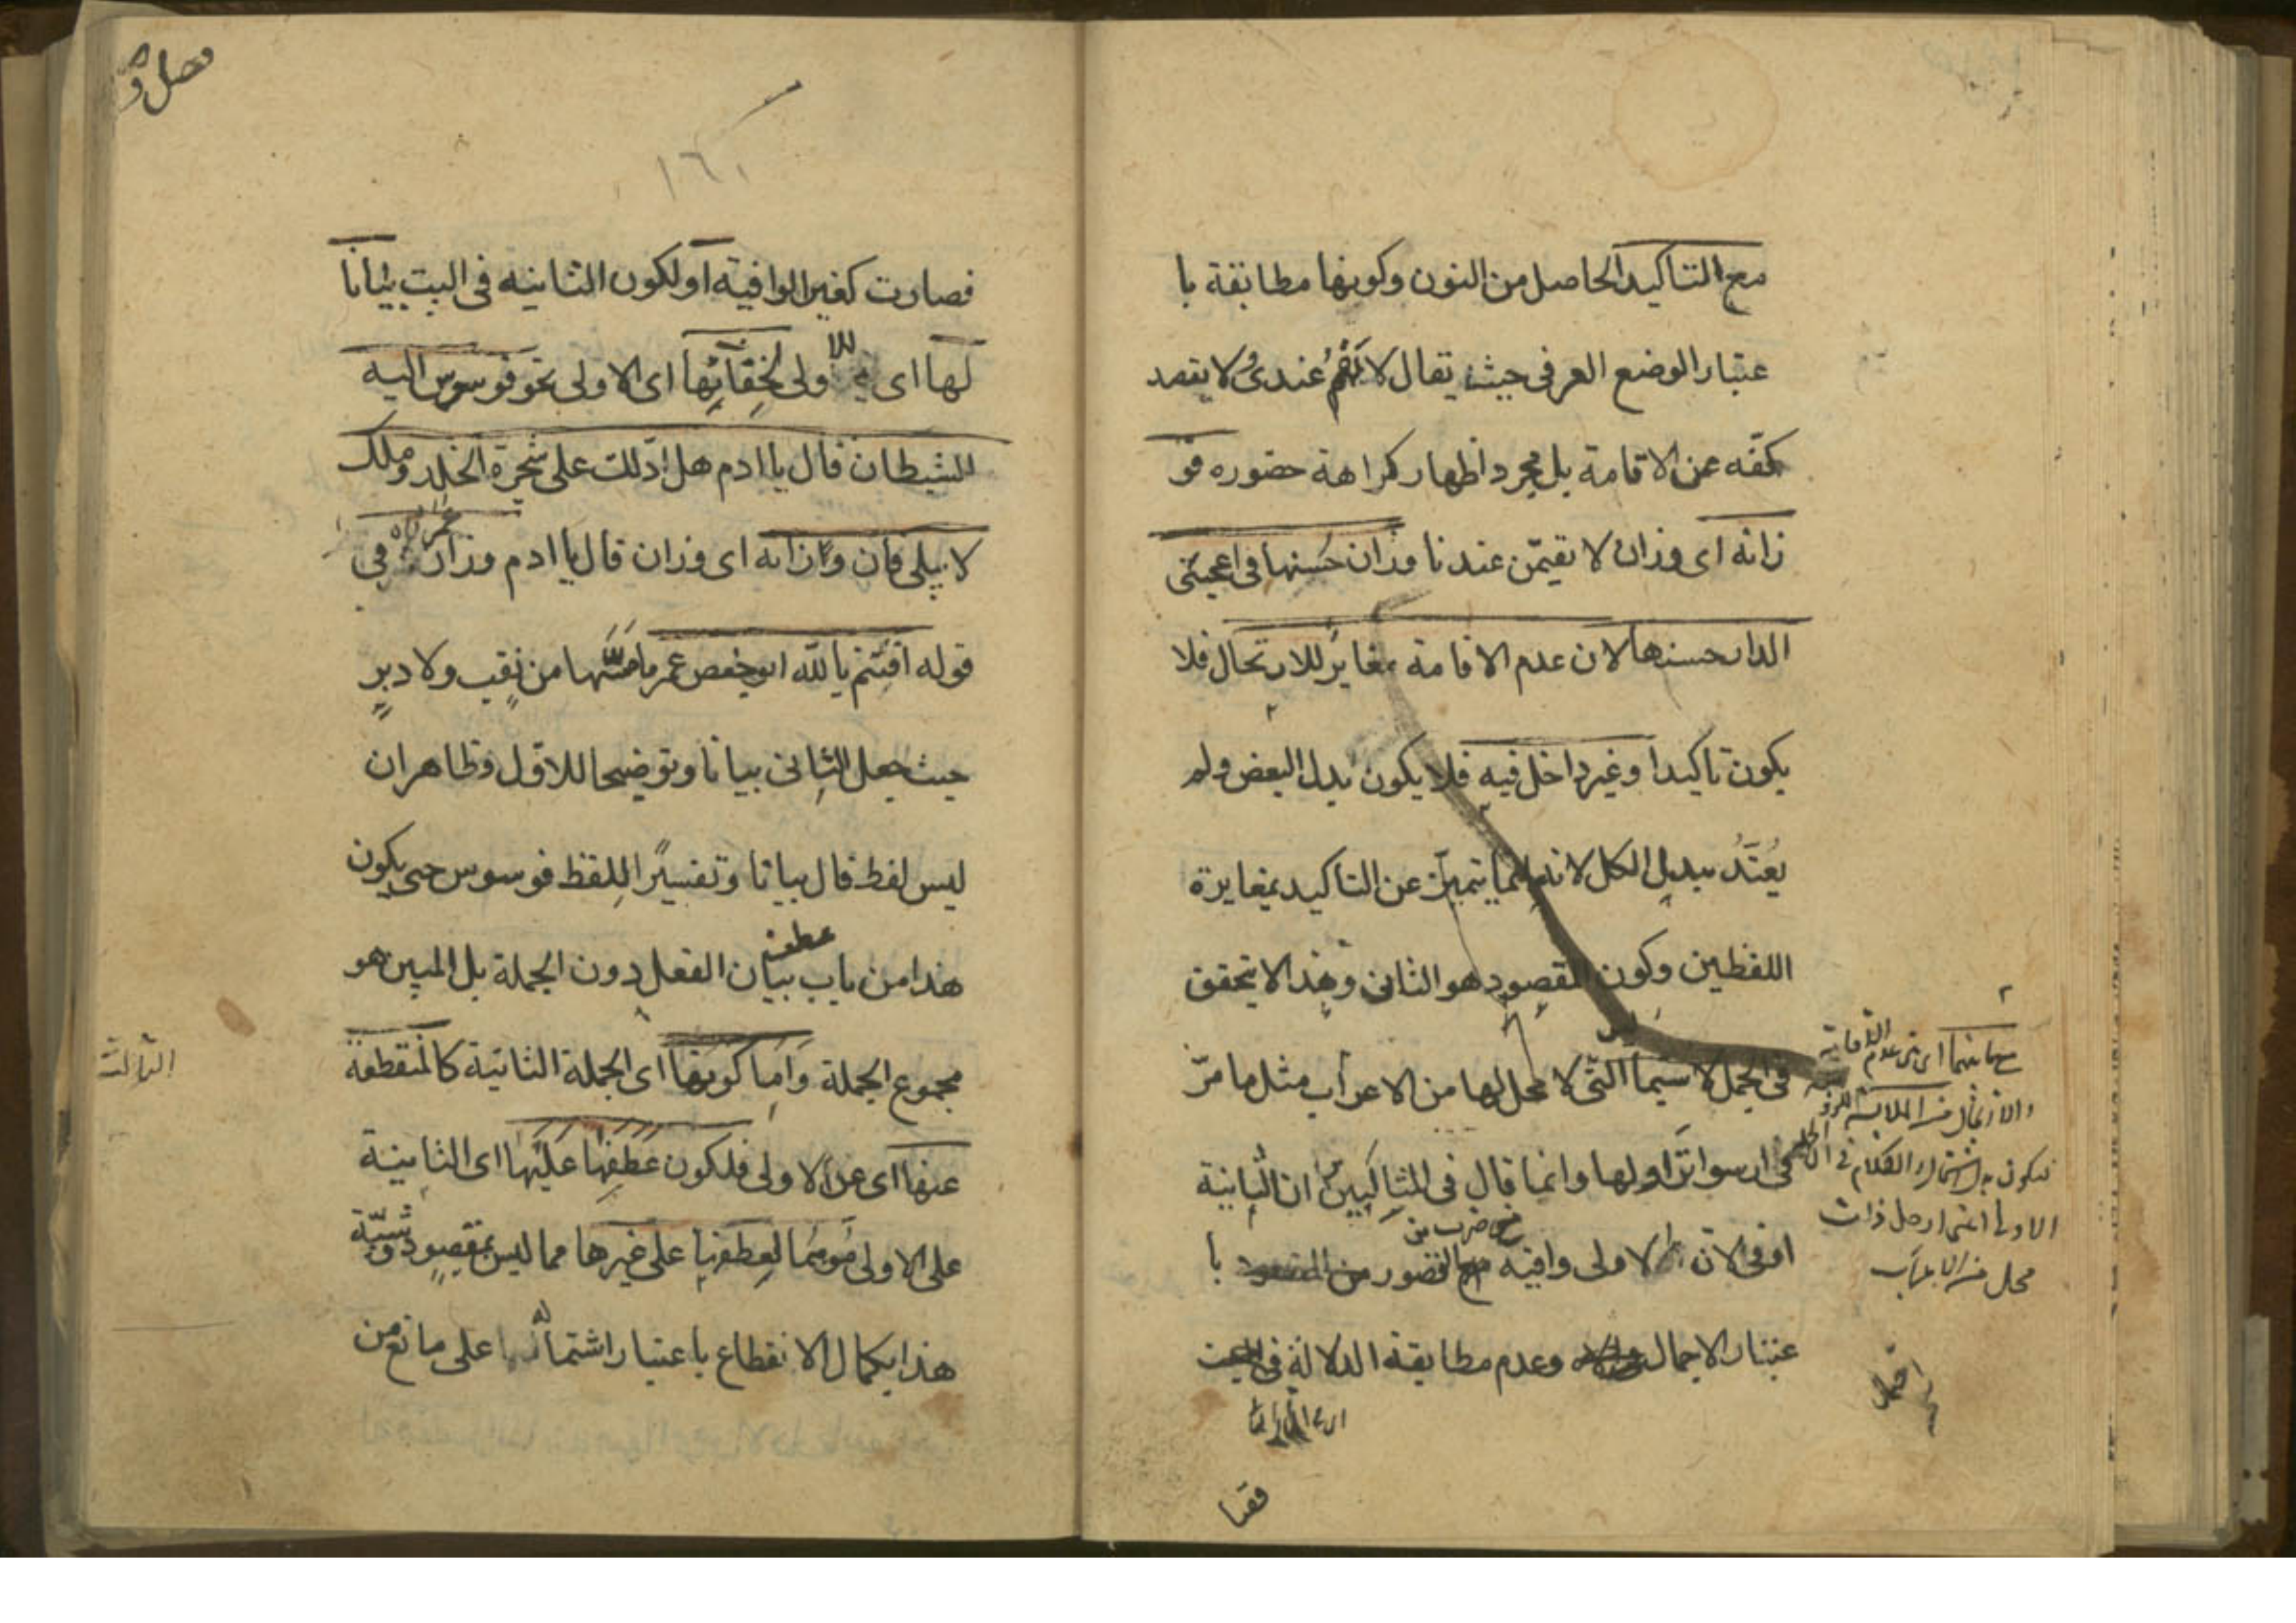 مع التاكيد الحاصل من النون وكونها مطابقة با
عتبار الوضع العرفى حيث يقال لا تقم عندى ولا يقصد
كفه عن الاقامة بل مجرد اظهار كراهة حضوره فو
زانه اى وزان لا تقيمن عندنا وزان حسنها فى اعجبنى
الدار حسنها لان عدم الاقامة مغاير للارتحال فلا
يكون تاكيدا وغير داخل فيه فلا يكون بدل البعض ولم
يعتد ببدل الكل لانه انما يتميز عن التاكيد بمغايرة
اللفظين وكون المقصود هو الثانى وهذا لا يتحقق
فى الجمل لا سيما التى لا محل لها من الاعراب مثل ما مر
فى ارسوا نزاولها وانما قال فى المثالين ان الثانية
اوفى لان الاولى وافية مع ضرب من القصور با
عتبار الاجمال وعدم مطابقة الدلالة فى
فقا
مع ما بينهما اى بين عدم الاقامة
والارتحال من الملابسة
فيكون بدل اشتمال والكلام فى ان الجملة
الاولى اعنى ارحل ذات
محل من الاعراب
فصارت كغير الوافية او لكون الثانية فى البيت بيانا
لها اى للاولى لخفائها اى الاولى نحو فوسوس اليه
الشيطان قال يا ادم هل ادلك على شجرة الخلد وملك
لا يبلى فان وزانه اى وزان قال يا ادم وزان عمر فى
قوله اقسم بالله ابو حفص عمر ما مسها من نقب ولا دبر
حيث جعل الثانى بيانا وتوضيحا للاول وظاهر ان
ليس لفظ قال بيانا وتفسيرا للفظ فوسوس حتى يكون
هذا من باب عطف بيان الفعل دون الجملة بل المبين هو
مجموع الجملة واما كونها اى الجملة الثانية كالمنقطعة
عنها اى عن الاولى فلكون عطفها عليها اى الثانية
على الاولى موهما لعطفها على غيرها مما ليس بمقصود وشبه
هذا بكمال الانقطاع باعتبار اشتماله على مانع من
الثالث